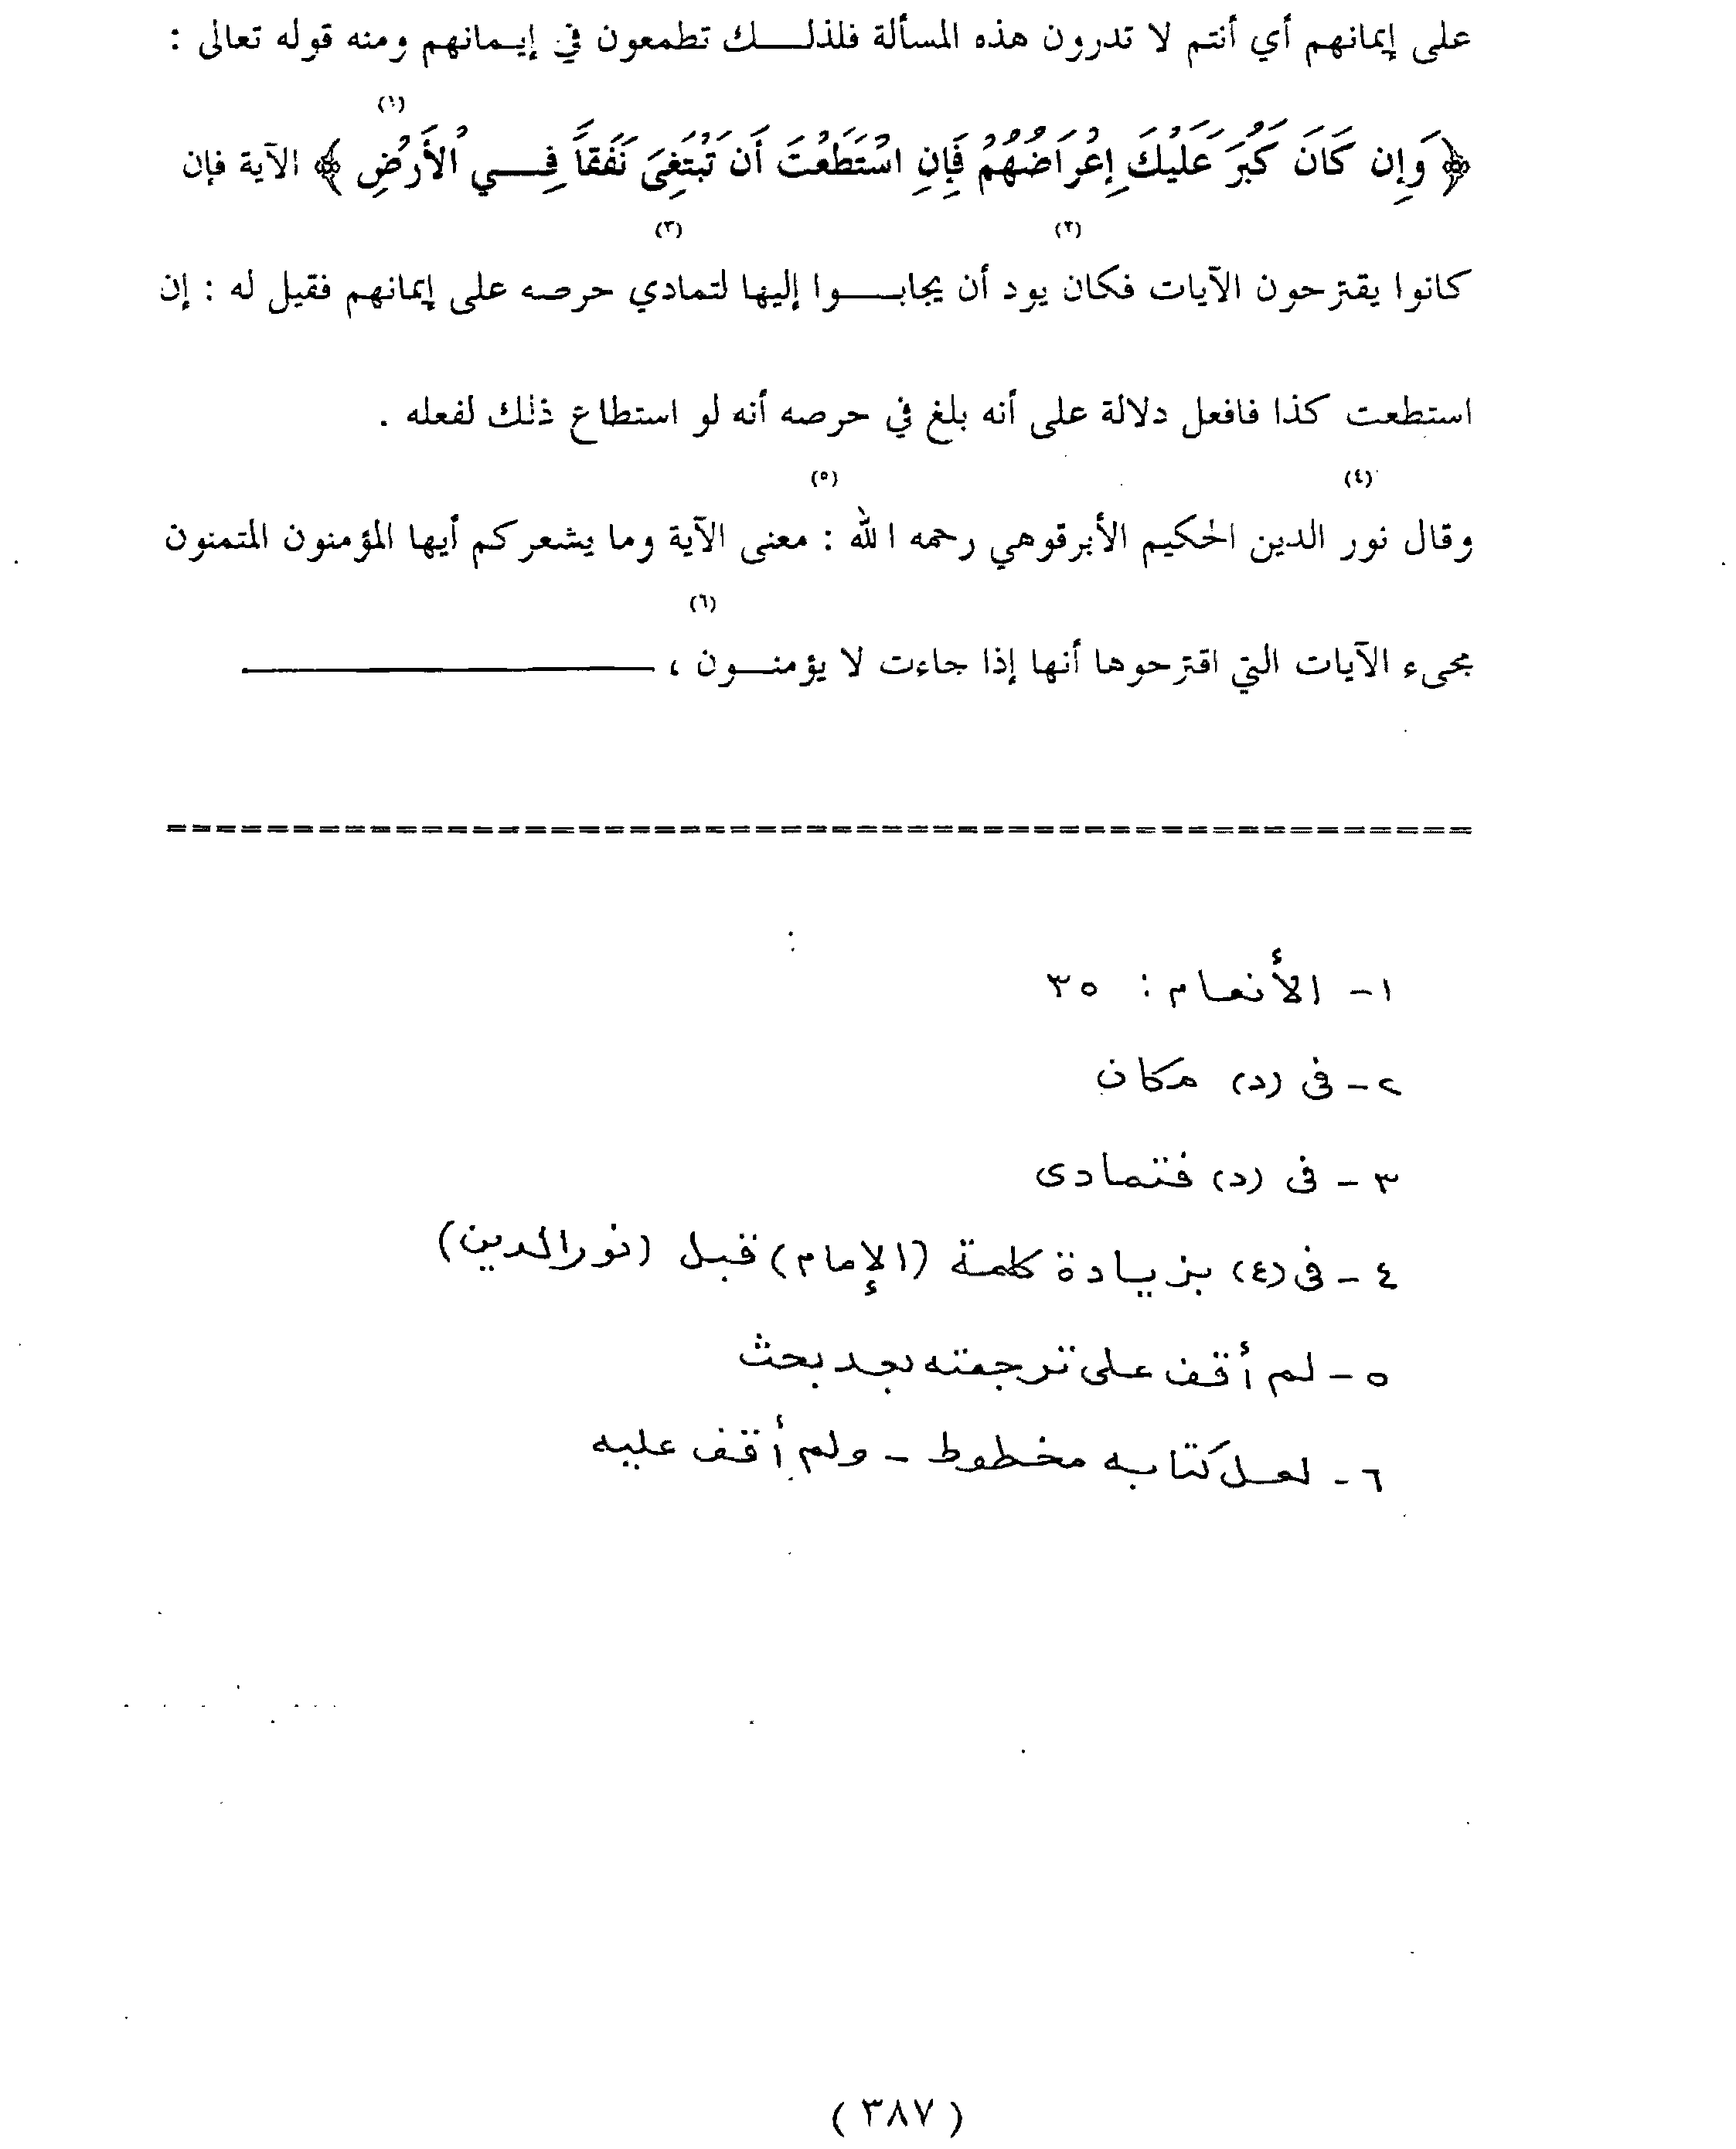 على إيمانهم أي أنتم لا تدرون هذه المسألة فلذلـــك تطمعون في إيـمانهم ومنه قوله تعالى :
(١)
﴿ وَإِن كَانَ كَبُرَ عَلَيْكَ إِعْرَاضُهُمْ فَإِنِ اسْتَطَعْتَ أَن تَبْتَغِىَ نَفَقاً فِـــي الْأَرْضِ ﴾ الآية فإن
(٢) (٣)
كانوا يقترحون الآيات فكان يود أن يجابـــوا إليها لتمادي حرصه على إيمانهم فقيل له : إن
استطعت كذا فافعل دلالة على أنه بلغ في حرصه أنه لو استطاع ذلك لفعله .
(٤) (٥)
وقال نور الدين الحكيم الأبرقوهي رحمه الله : معنى الآية وما يشعركم أيها المؤمنون المتمنون
(٦)
مجىء الآيات التي اقترحوها أنها إذا جاءت لا يؤمنـــون ،
١- الأنعام : ٣٥
٢- فى (د) مكان
٣- فى (د) فتمادى
٤- فى (ع) بزيادة كلمة (الإمام) قبل (نور الدين)
٥- لم أقف على ترجمته بعد بحث
٦- لعل كتابه مخطوط - ولم أقف عليه
( ٣٨٧ )